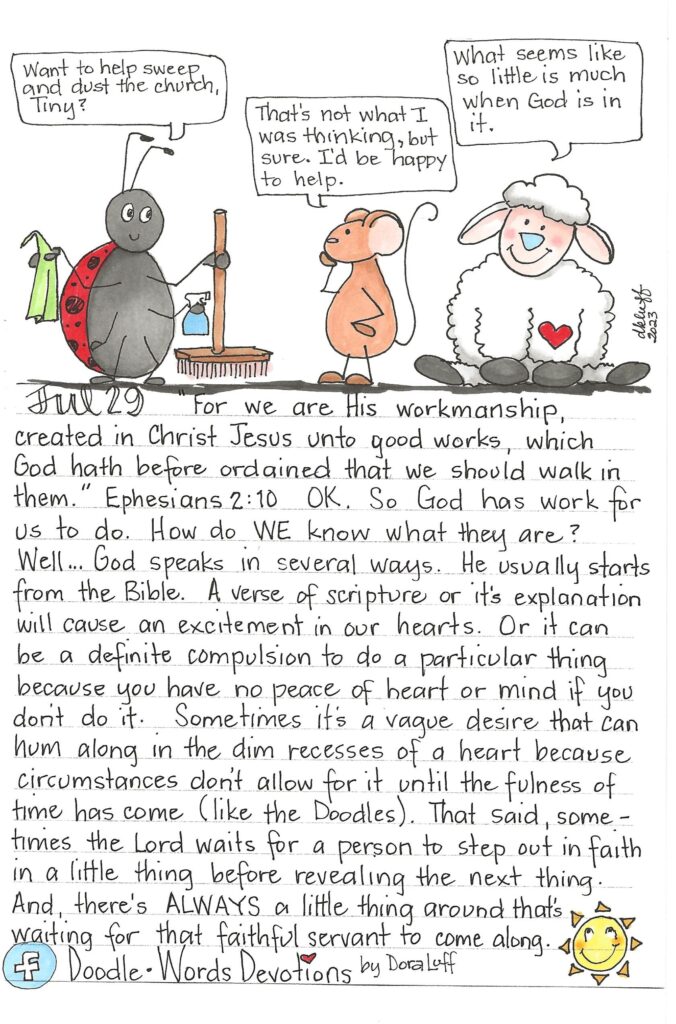 Want to help sweep
and dust the church,
Tiny?
That's not what I
was thinking, but
sure. I'd be happy
to help.
What seems like
so little is much
when God is in
it.
dkluff
2023
Jul 29 "For we are His workmanship,
created in Christ Jesus unto good works, which
God hath before ordained that we should walk in
them." Ephesians 2:10 OK. So God has work for
us to do. How do WE know what they are?
Well... God speaks in several ways. He usually starts
from the Bible. A verse of scripture or it's explanation
will cause an excitement in our hearts. Or it can
be a definite compulsion to do a particular thing
because you have no peace of heart or mind if you
don't do it. Sometimes it's a vague desire that can
hum along in the dim recesses of a heart because
circumstances don't allow for it until the fulness of
time has come (like the Doodles). That said, some-
times the Lord waits for a person to step out in faith
in a little thing before revealing the next thing.
And, there's ALWAYS a little thing around that's
waiting for that faithful servant to come along.
f Doodle·Words Devotions by Dora Luff